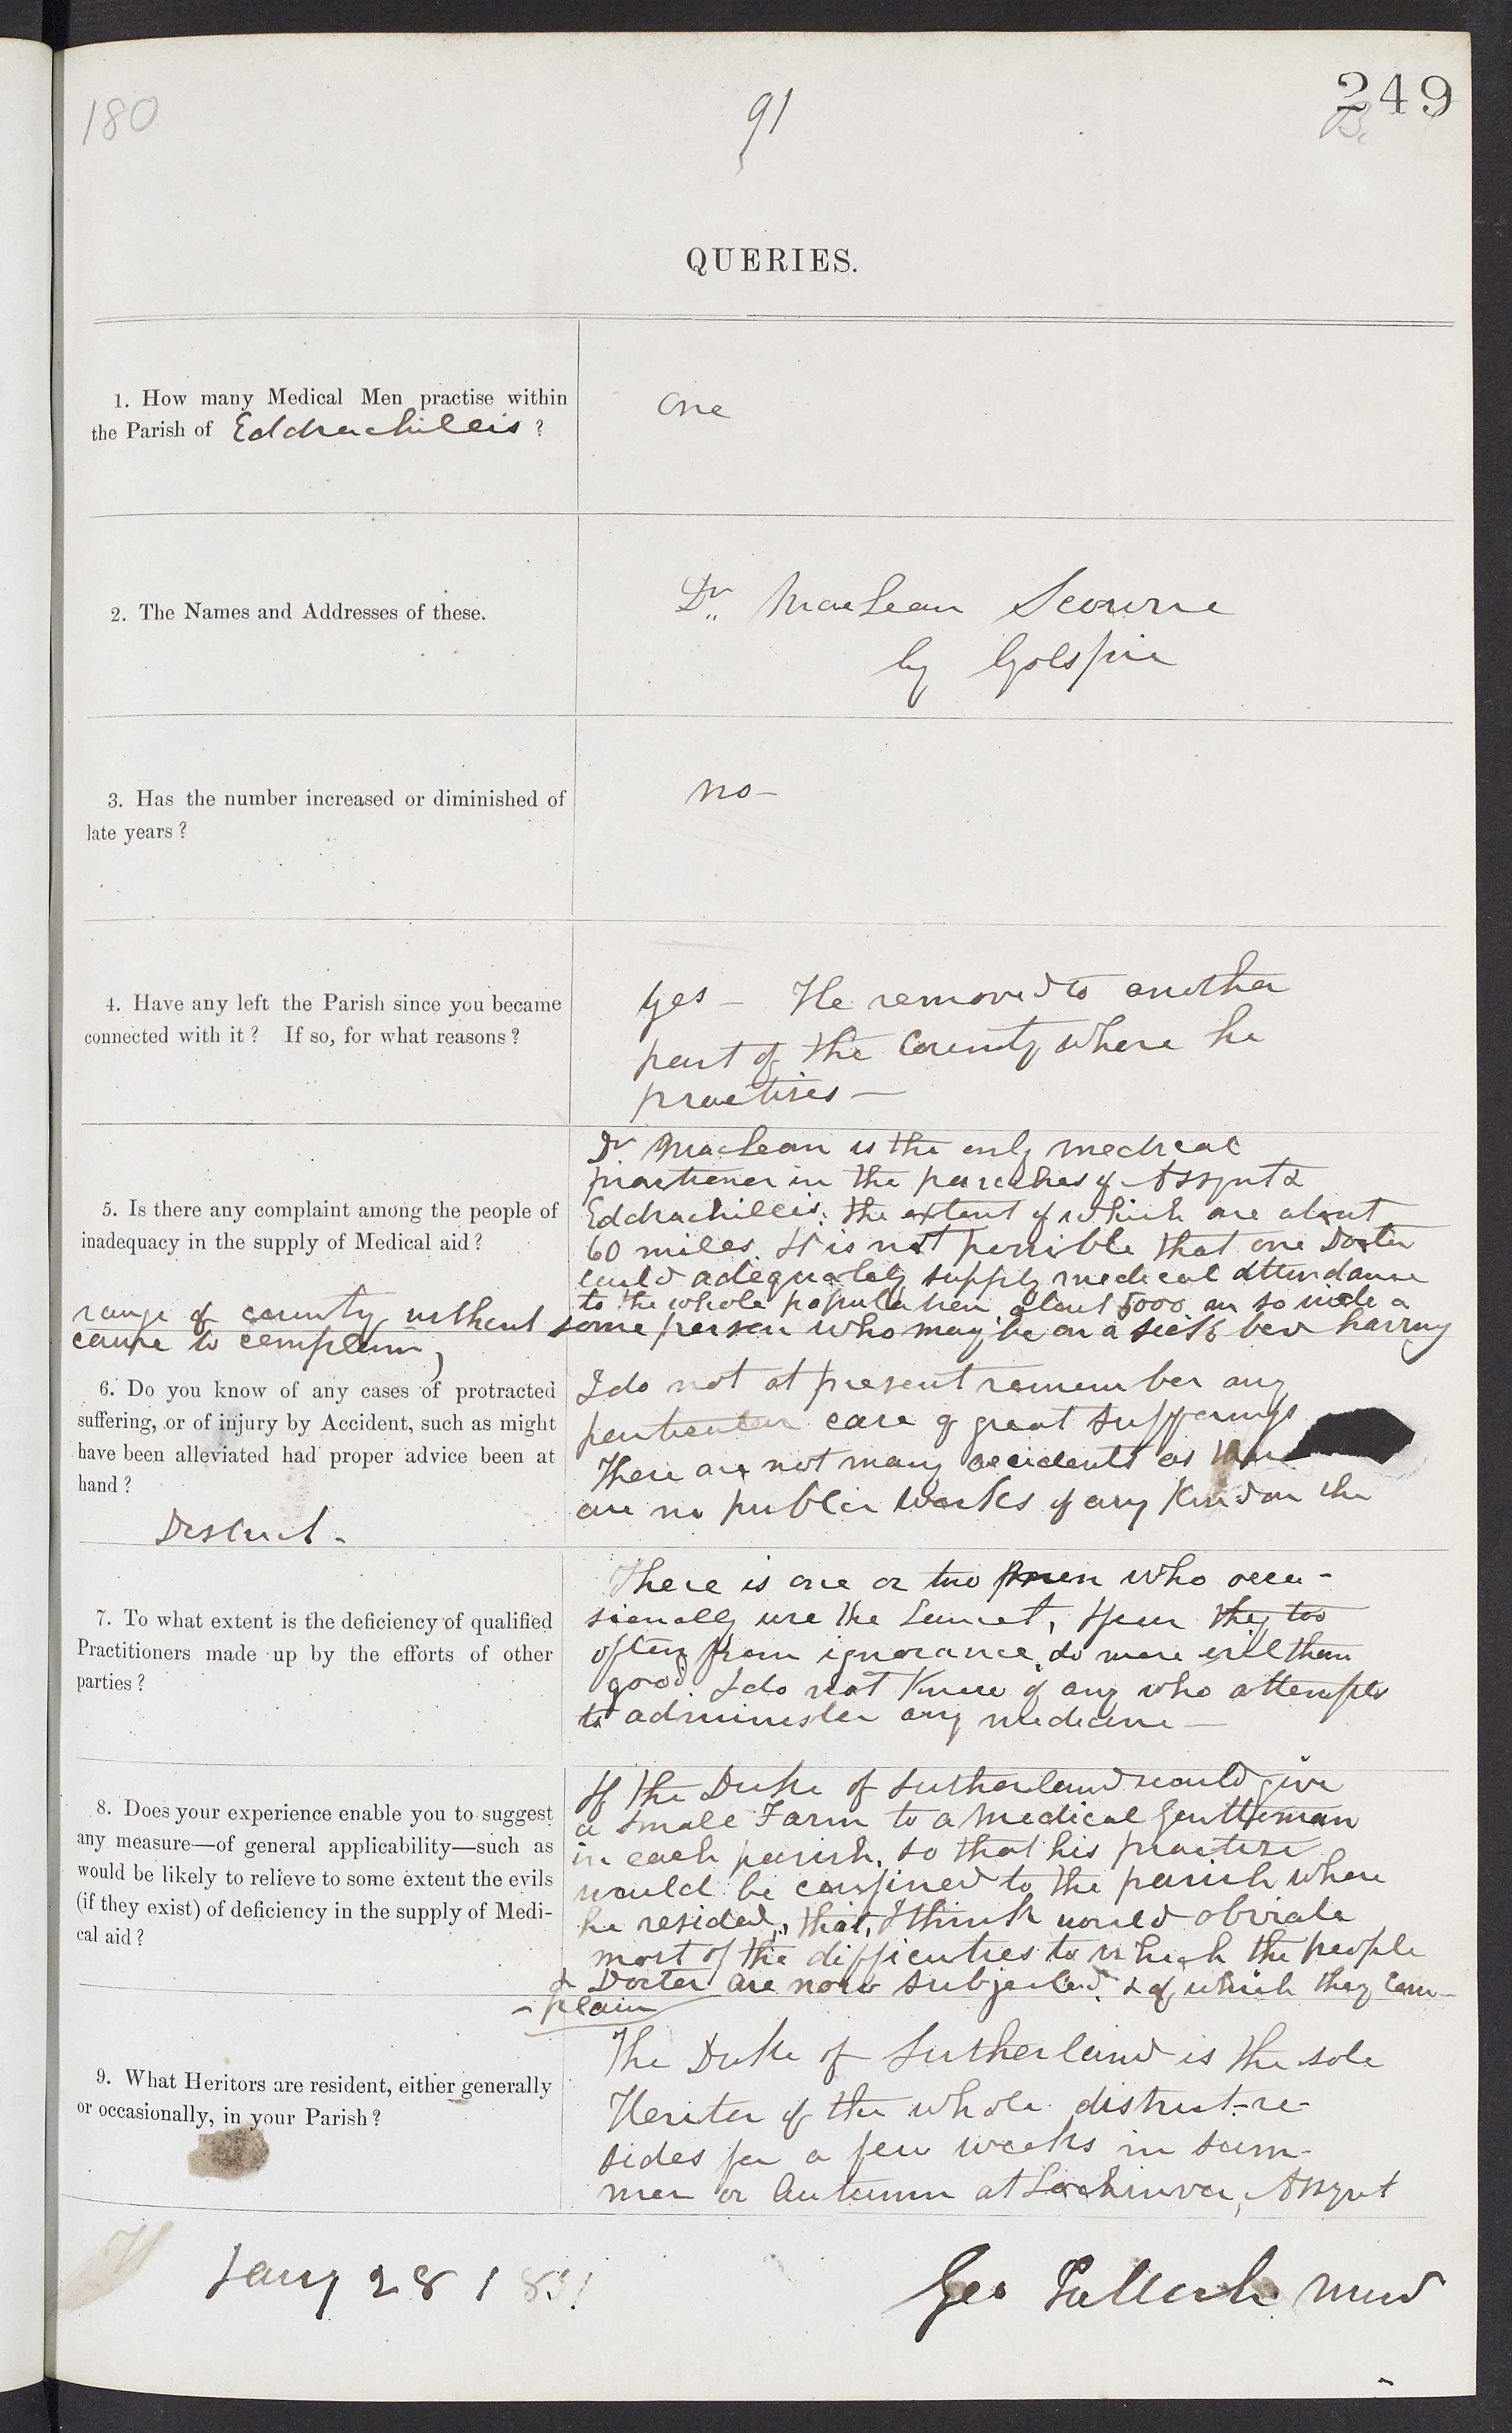 180
91
249
QUERIES.
1. How many Medical Men practise within
the Parish of Eddrachilles ?
One
2. The Names and Addresses of these.
Dr. MacLean Scourie
by Golspie
3. Has the number increased or diminished of
late years ?
no —
4. Have any left the Parish since you became
connected with it ? If so, for what reasons ?
Yes — He removed to another
part of the County where he
practises —
5. Is there any complaint among the people of
inadequacy in the supply of Medical aid ?
Dr MacLean is the only medical
practioner in the parishes of Assynt &
Eddrachillis; the extent of which are about
60 miles. It is not possible that one Doctor
could adequately supply medical attendance
to the whole population about 5000 in so wide a
range of county without some person who may be on a sick bed having
cause to complain,
6. Do you know of any cases of protracted
suffering, or of injury by Accident, such as might
have been alleviated had proper advice been at
hand ?
I do not at present remember any
particular case of great sufferings
There are not many accidents as there
are no public works of any kind on the
District -
7. To what extent is the deficiency of qualified
Practitioners made up by the efforts of other
parties ?
There is one or two men who occa-
sionally use the Lancet, I fear they too
often from ignorance, do more evil than
good. I do not know of any who attempts
to administer any medicine —
8. Does your experience enable you to suggest
any measure—of general applicability—such as
would be likely to relieve to some extent the evils
(if they exist) of deficiency in the supply of Medi-
cal aid ?
If the Duke of Sutherland would give
a small Farm to a Medical Gentleman
in each parish, so that his practise
would be confined to the parish where
he resided, that, I think would obviate
most of the difficulties to which the people
& Doctor are now subjected, & of which they com-
-plain
9. What Heritors are resident, either generally
or occasionally, in your Parish ?
The Duke of Sutherland is the sole
Heritor of the whole district - re-
sides for a few weeks in sum-
mer or Autumn at Lochinver, Assynt
Jany 28 1851
Geo Tulloch Mind